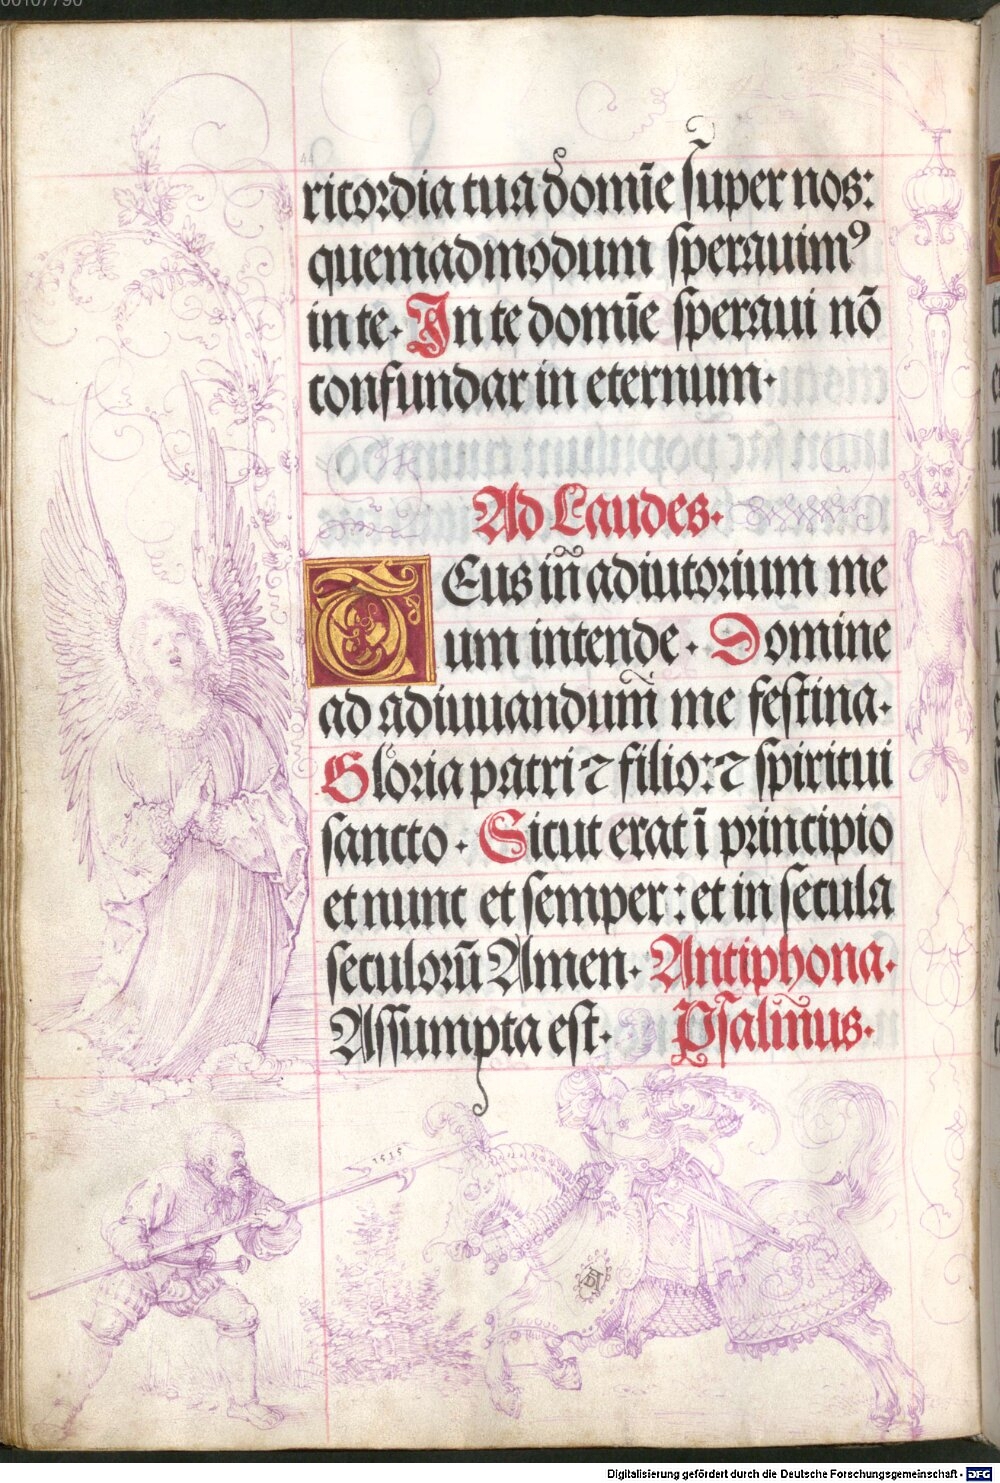 00107790
44
ricordia tua domīe super nos:
quemadmodum sperauimꝰ
in te. In te domīe speraui nō
confundar in eternum.
Ad Laudes.
DEus in̄ adiutorium me
um intende. Domine
ad adiuuandum̄ me festina.
Gloria patri ⁊ filio: ⁊ spiritui
sancto. Sicut erat ī principio
et nunc et semper: et in secula
seculorū Amen. Antiphona.
Assumpta est. Psalm̄us.
1515
AD
Digitalisierung gefördert durch die Deutsche Forschungsgemeinschaft - DFG